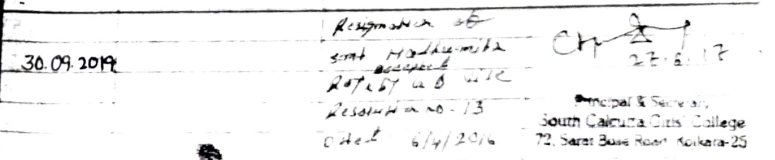 30.09.2019
Resignation of
Smt Madhumita
accepted
by G B vide
Resolution no. 13
Dated 6/4/2016
27.6.17
Principal & Secretary,
South Calcutta Girls' College
72, Sarat Bose Road Kolkata-25